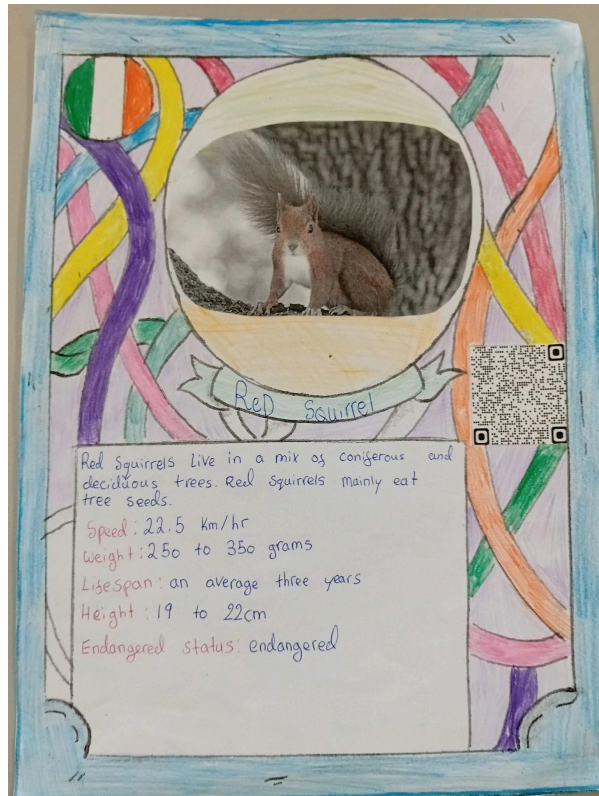 Red Squirrel
Red Squirrels Live in a mix of coniferous and
deciduous trees. Red Squirrels mainly eat
tree seeds.
Speed: 22.5 Km/hr
Weight: 250 to 350 grams
Lifespan: an average three years
Height: 19 to 22cm
Endangered status: endangered